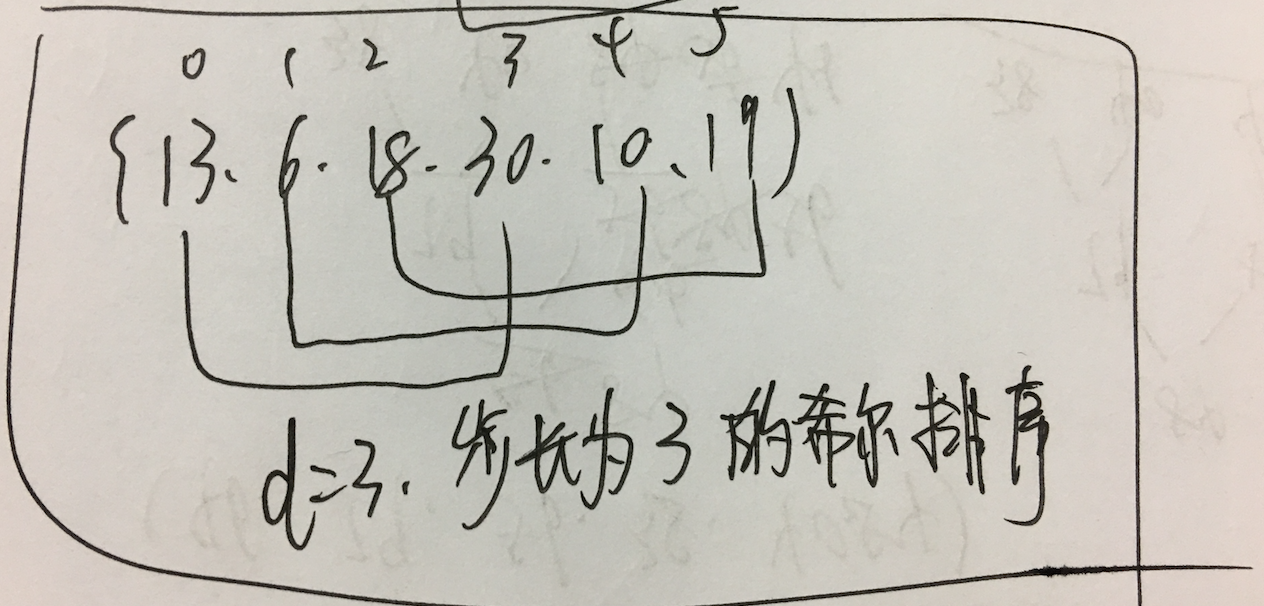 0 1 2 3 4 5
{13、6.18.30.10、19)
d=3. 步长为3的希尔排序